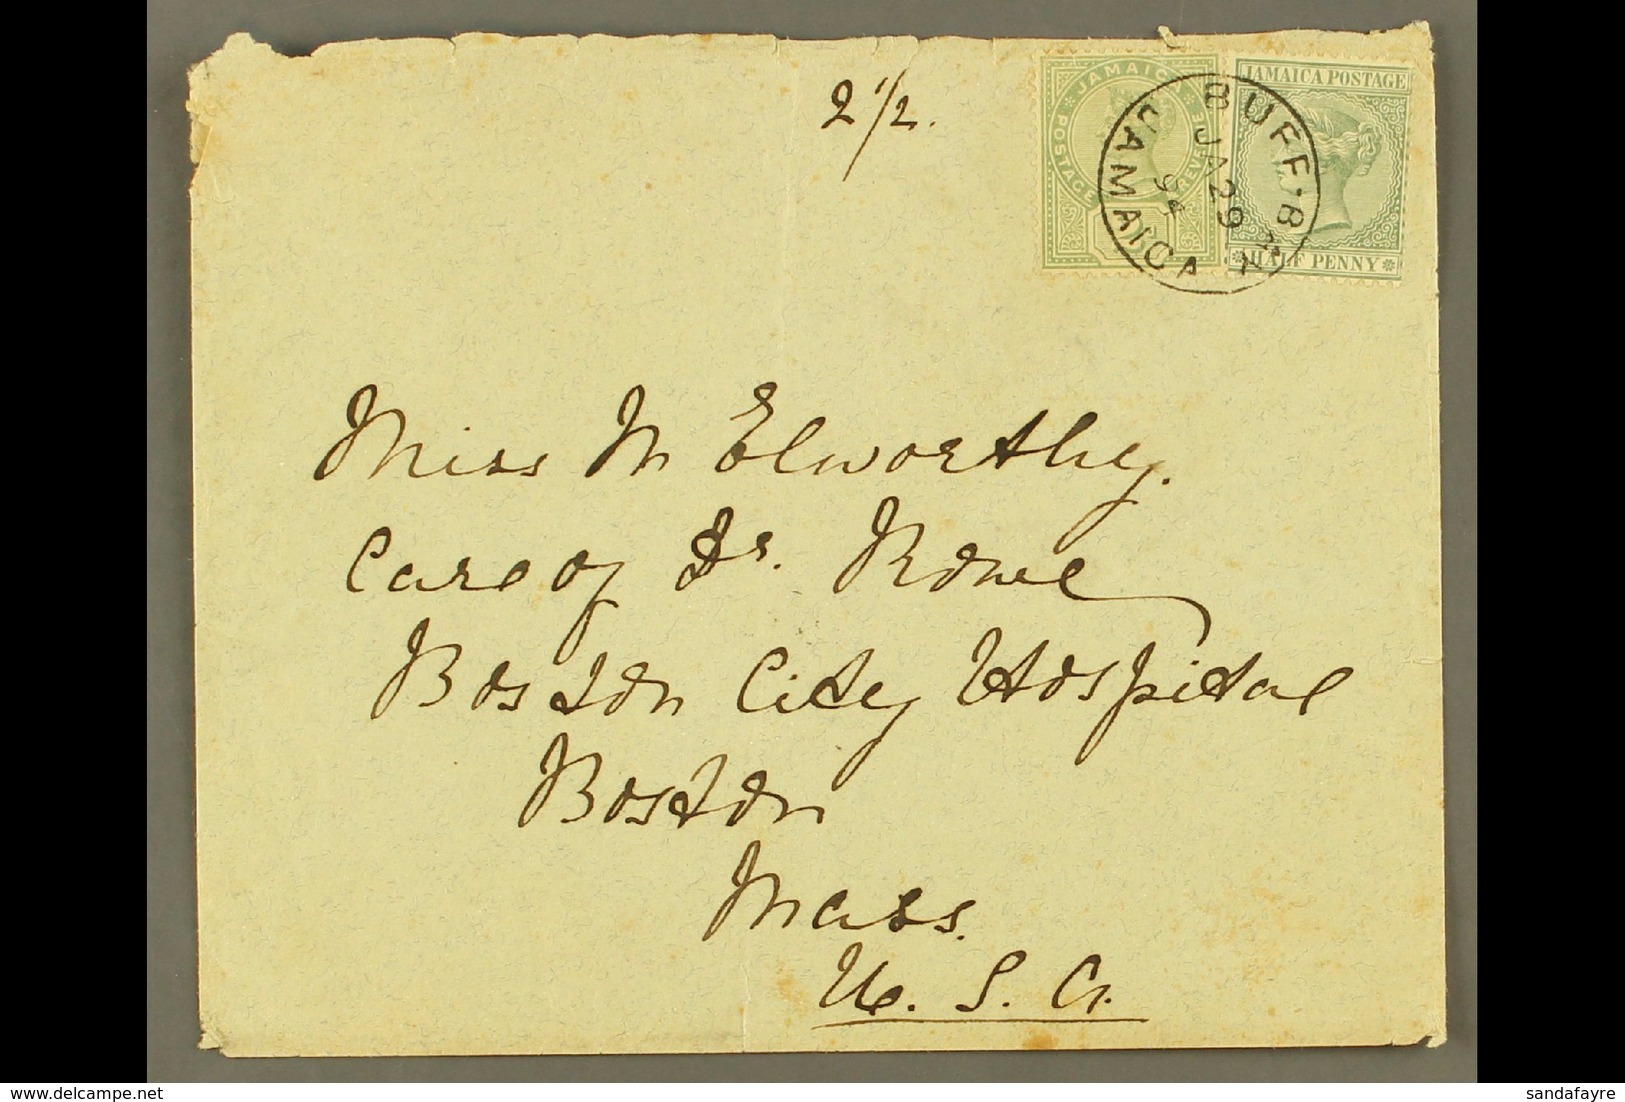 2 1/2.
JAMAICA
POSTAGE
REVE
JAMAICA POSTAGE
HALF PENNY
BUFF·B
JA 29
94
JAMAICA
Miss M Elworthy.
Care of Dr. Rowe
Boston City Hospital
Boston
Mass.
U. S. A.
delcampe.net
sandafayre